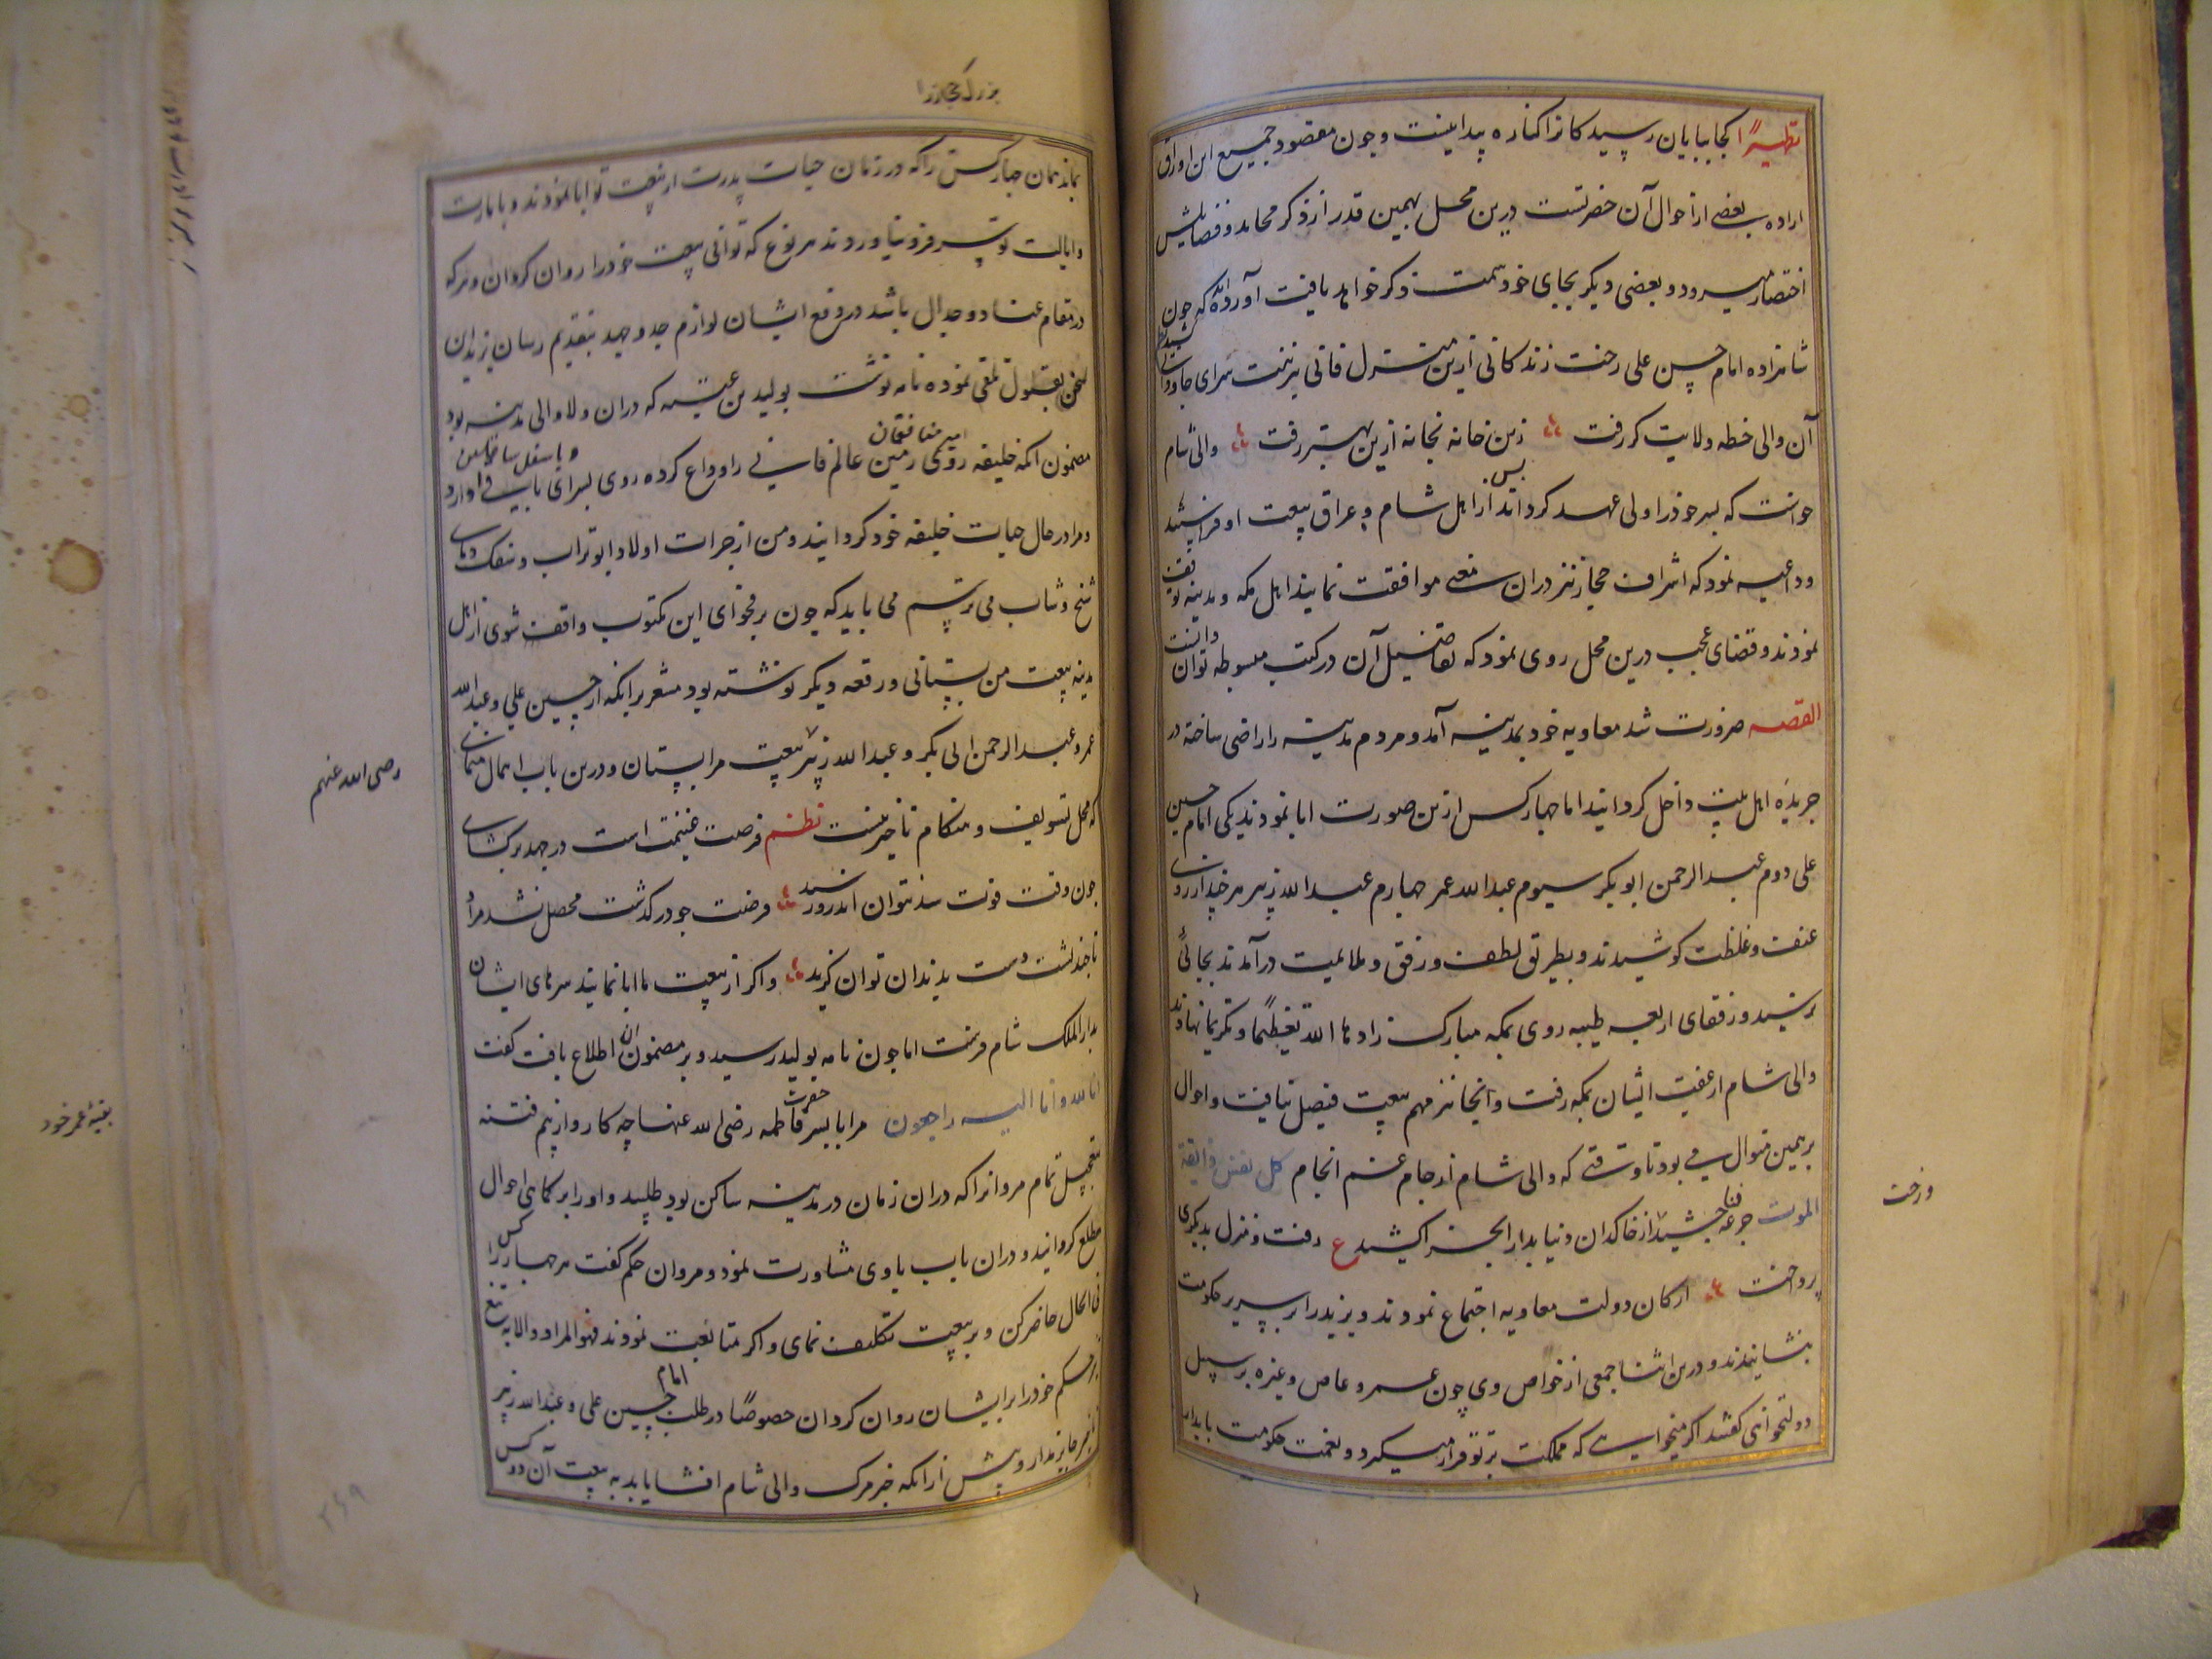 تطهیرًا کجا بپایان رسید کانرا کناره پیدا نیست و چون مقصود جمیع این اوراق
اراده بعضی از احوال آن حضرتست درین محل بهمین قدر از ذکر محامد و فضایلش
اختصار میرود و بعضی دیکر بجای خود سمت ذکر خواهد یافت آورده‌اند که چون
شاهزاده امام حسن علی رخت زندکانی ازین منزل فانی برنیت سرای جاودانی کشید
آن والی خطه ولایت کر رفت زین خانه بخانه ازین بهتر رفت والی شام
خواست که پسر خود را ولی عهد کرداند پس از اهل شام و عراق بیعت او فرا ستد
وداعیه نمود که اشراف حجاز نیز دران معنی موافقت نمایند اهل مکه و مدینه توقف
نمودند و قضای عجب درین محل روی نمود که تفاصیل آن در کتب مبسوطه توان دانست
القصه ضرورت شد معاویه خود بمدینه آمد و مردم مدینه را راضی ساخته در
جریده اهل بیت داخل کردانید اما چهار کس ازین صورت ابا نمودند یکی امام حسین
علی دوم عبدالرحمن ابوبکر سیوم عبدالله عمر چهارم عبدالله زبیر هر چند از روی
عنف و غلظت کوشیدند و بطریق لطف و رفق و ملایمت درآمدند بجائی
نرسید و رفقای اربعه طیبه روی بمکه مبارک زادها الله تعظیمًا و تکریما نهادند
والی شام از عقب ایشان بمکه رفت و آنجا نیز مهم بیعت فیصل نیافت و احوال
بر همین منوال می بود تا وقتی که والی شام از جام غم انجام کل نفس ذایقة
الموت جرعه فنا چشید از خاکدان دنیا بدار الجزا کشید ع رفت و منزل بدیکری
پرداخت ارکان دولت معاویه اجتماع نمودند و یزید را بر سریر حکومت
بنشانیدند و درین اثنا جمعی از خواص وی چون عمرو عاص و غیره بر سبیل
دولتخواهی کفتند اکر میخواهی که مملکت بر تو قرار میکیرد و نعمت حکومت پایدار
ورخت
بزرک حجاز را
بماند همان چهار کس را که در زمان حیات پدرت از بیعت تو ابا نمودند و با مارت
و ایالت تو سر فرو نیاوردند هر نوع که توانی بیعت خود را روان کردان و هر که
در مقام عناد و جدال باشد در رفع ایشان لوازم جد و جهد بتقدیم رسان یزید این
سخن بقبول تلقی نموده نامه نوشت بولید بن عتبه که دران ولا والی مدینه بود
مضمون آنکه خلیفه روی زمین امیر منافقان عالم فانی را وداع کرده روی بسرای باقی آورد
و مرا در حال حیات خلیفه خود کردانید و من از جرات اولاد ابوتراب و سفک دمای
شیخ و شاب می ترسم می باید که چون بر فحوای این مکتوب واقف شوی از اهل
مدینه بیعت من بستانی و رقعه دیکر نوشته بود مشعر برانکه از حسین علی و عبدالله
عمر و عبدالرحمن ابی بکر و عبدالله زبیر بیعت مرا بستان و درین باب اهمال منمای
رضی الله عنهم
که محل تسویف و هنکام تاخیر نیست نظم فرصت غنیمت است در جهد برکشای
چون وقت فوت شد نتوان اندرو رسید فرصت چو درکذشت محصل نشد مراد
تا چند پشت دست بدندان توان کزید و اکر از بیعت ما ابا نمایند سرهای ایشان
بدار الملک شام فرست اما چون نامه بولید رسید و بر مضمون آن اطلاع یافت کفت
انا لله و انا الیه راجعون مرا با پسر حضرت فاطمه رضی الله عنها چه کار و از بیم فتنه
بتعجیل تمام مروانرا که دران زمان در مدینه ساکن بود طلبید و او را بر کماهی احوال
مطلع کردانید و دران باب باوی مشاورت نمود و مروان حکم کفت هر چهار کس را
فی الحال حاضر کن و بر بیعت تکلیف نمای و اکر متابعت نمودند فهو المراد و الا به تیغ
حکم خود را بر ایشان روان کردان خصوصًا در طلب امام حسین علی و عبدالله زبیر
تاخیر جایز مدار و پیش از آنکه خبر مرک والی شام افشا یابد به بیعت آن دو کس
بقیهٔ عمر خود
۲۶۹